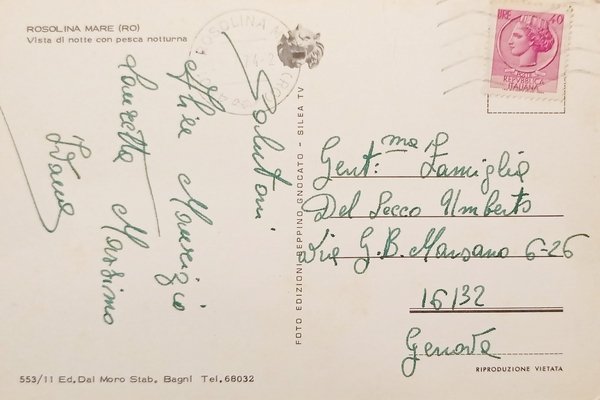 ROSOLINA MARE (RO)
Vista di notte con pesca notturna
ROSOLINA
Salutoni
Alice Maurizio
Lauretta Massimo
Ivana
FOTO EDIZIONI BEPPINO GNOCATO - SILEA TV
LIRE 40
REPUBBLICA
ITALIANA
Gent:ma Famiglia
Del Secco Umberto
Via G.B. Marsano 6-26
16132
Genova
553/11 Ed. Dal Moro Stab. Bagni Tel. 68032
RIPRODUZIONE VIETATA